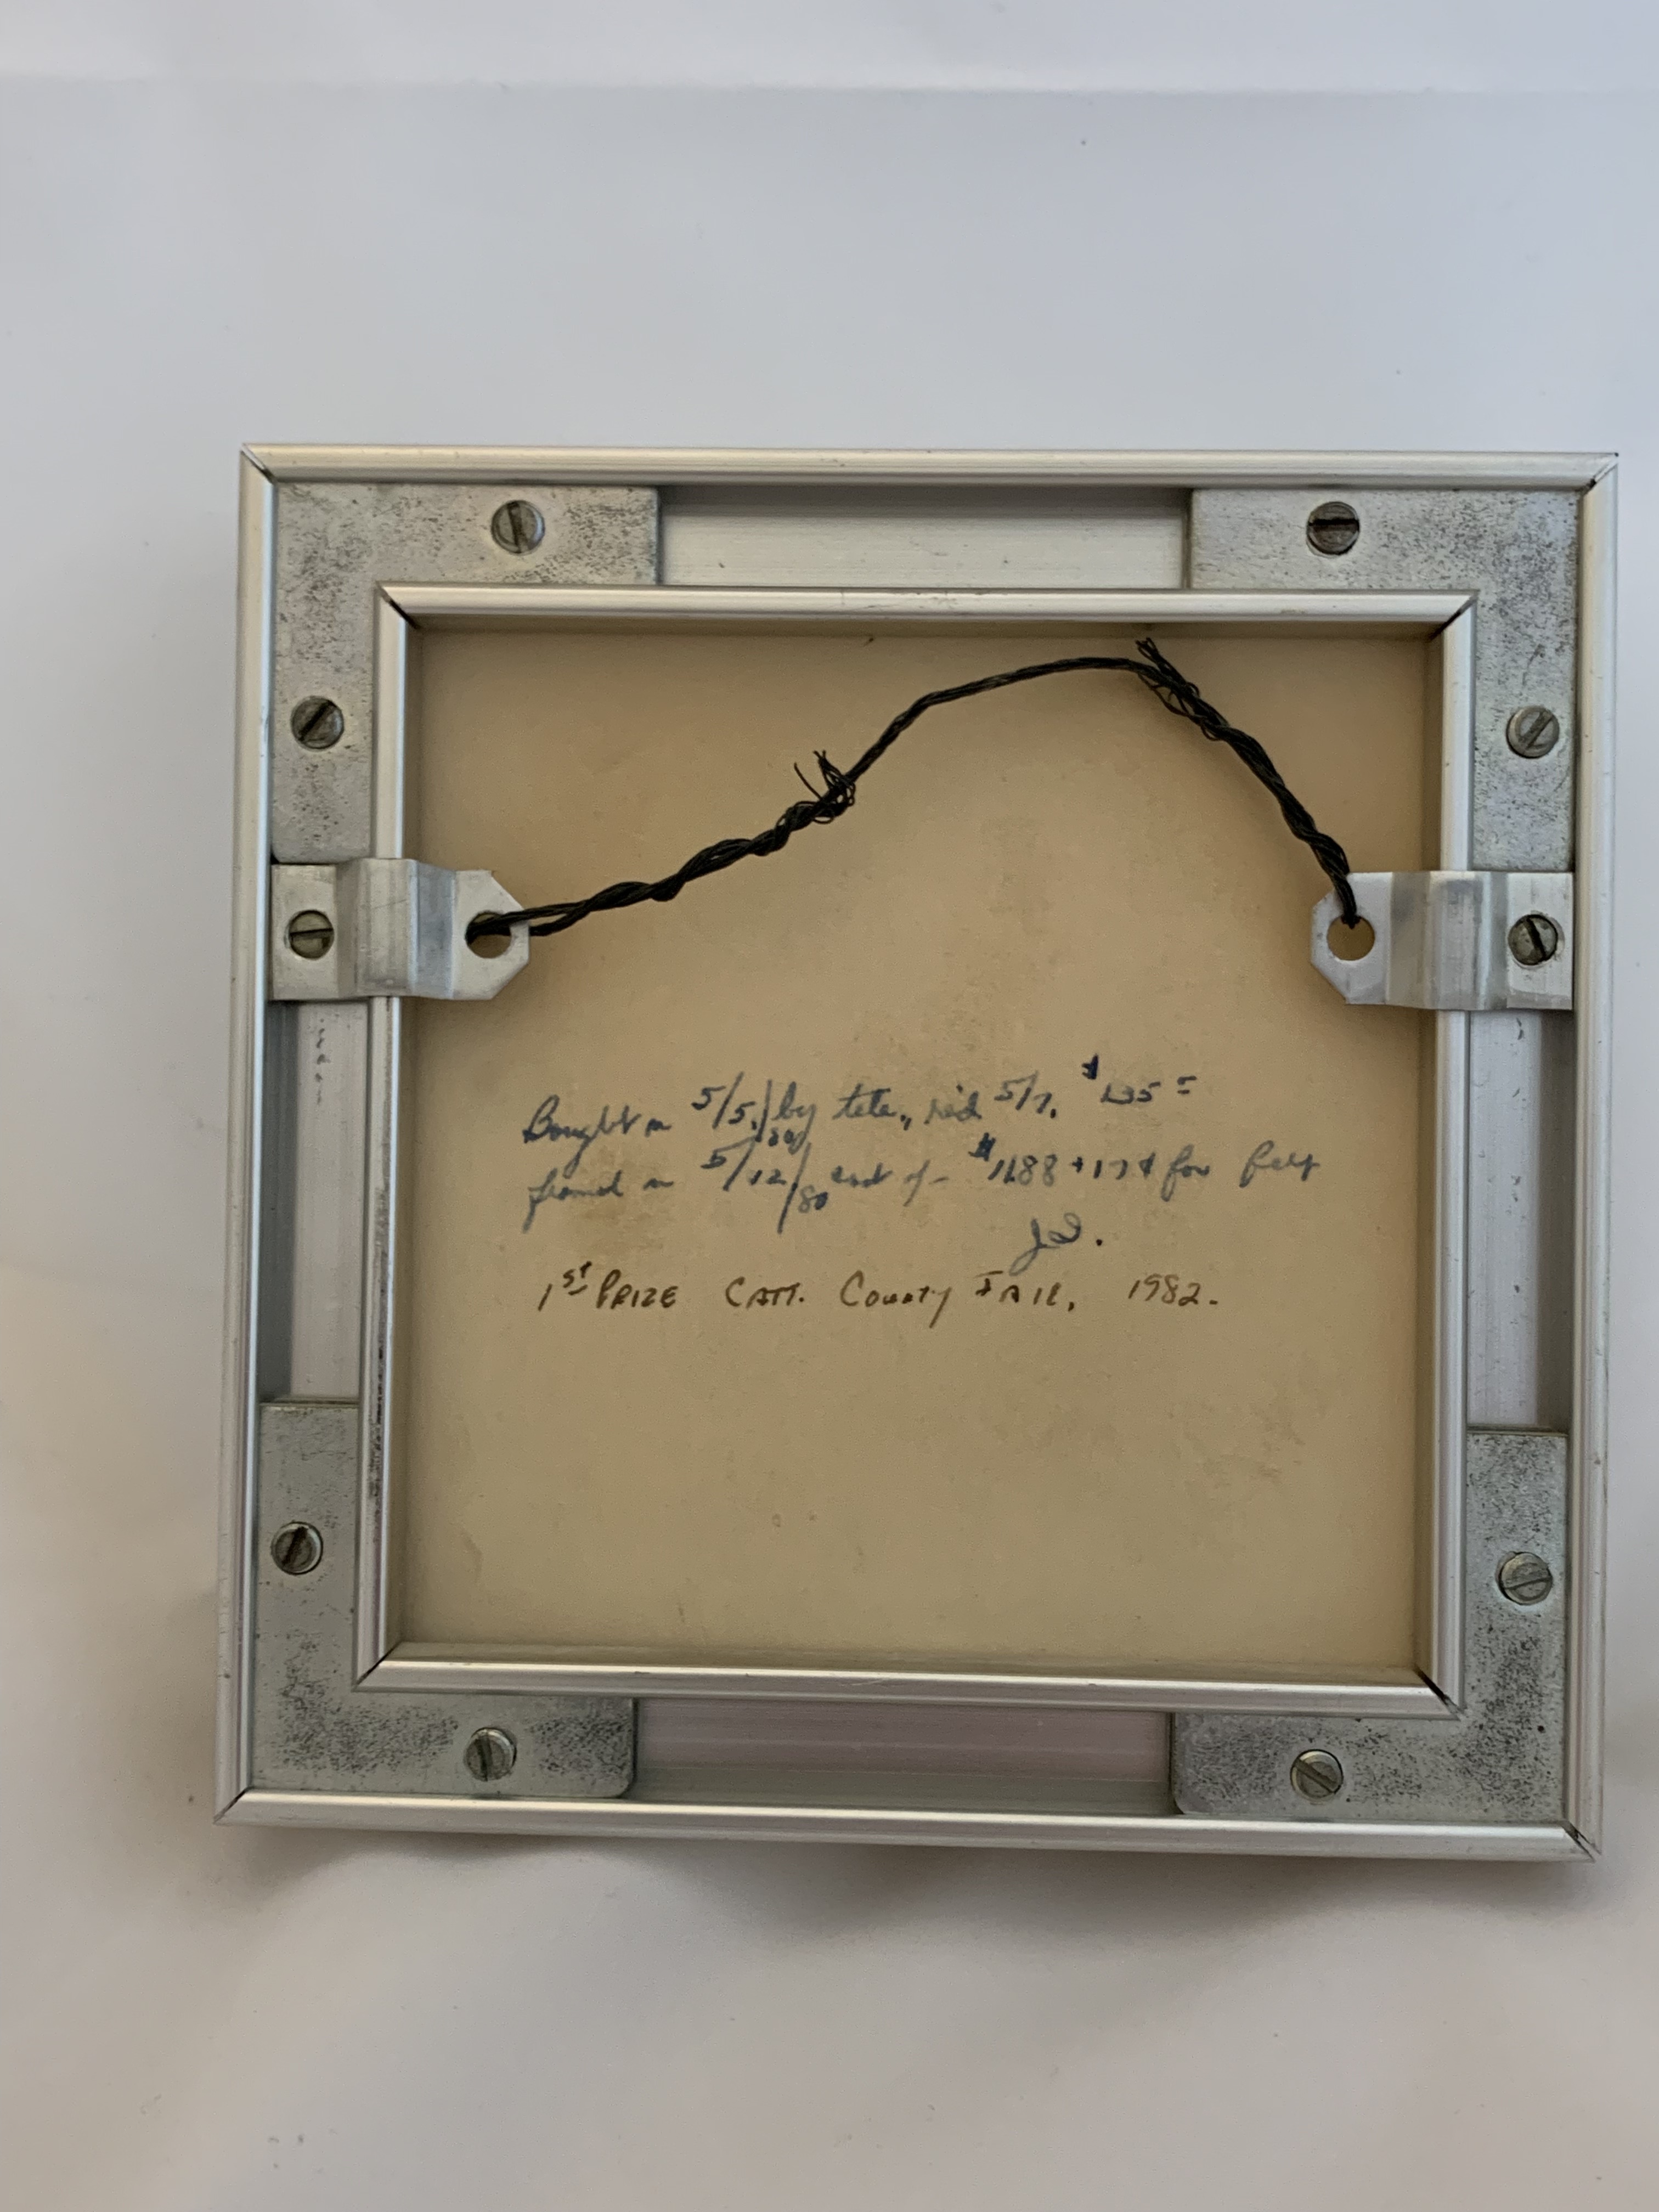 Bought on 5/5/80 by tele., rec'd 5/7, $
framed on 5/12/80 cost of - $ + 17¢ for
J.S.
1st PRIZE CATT. COUNTY FAIR, 1982.